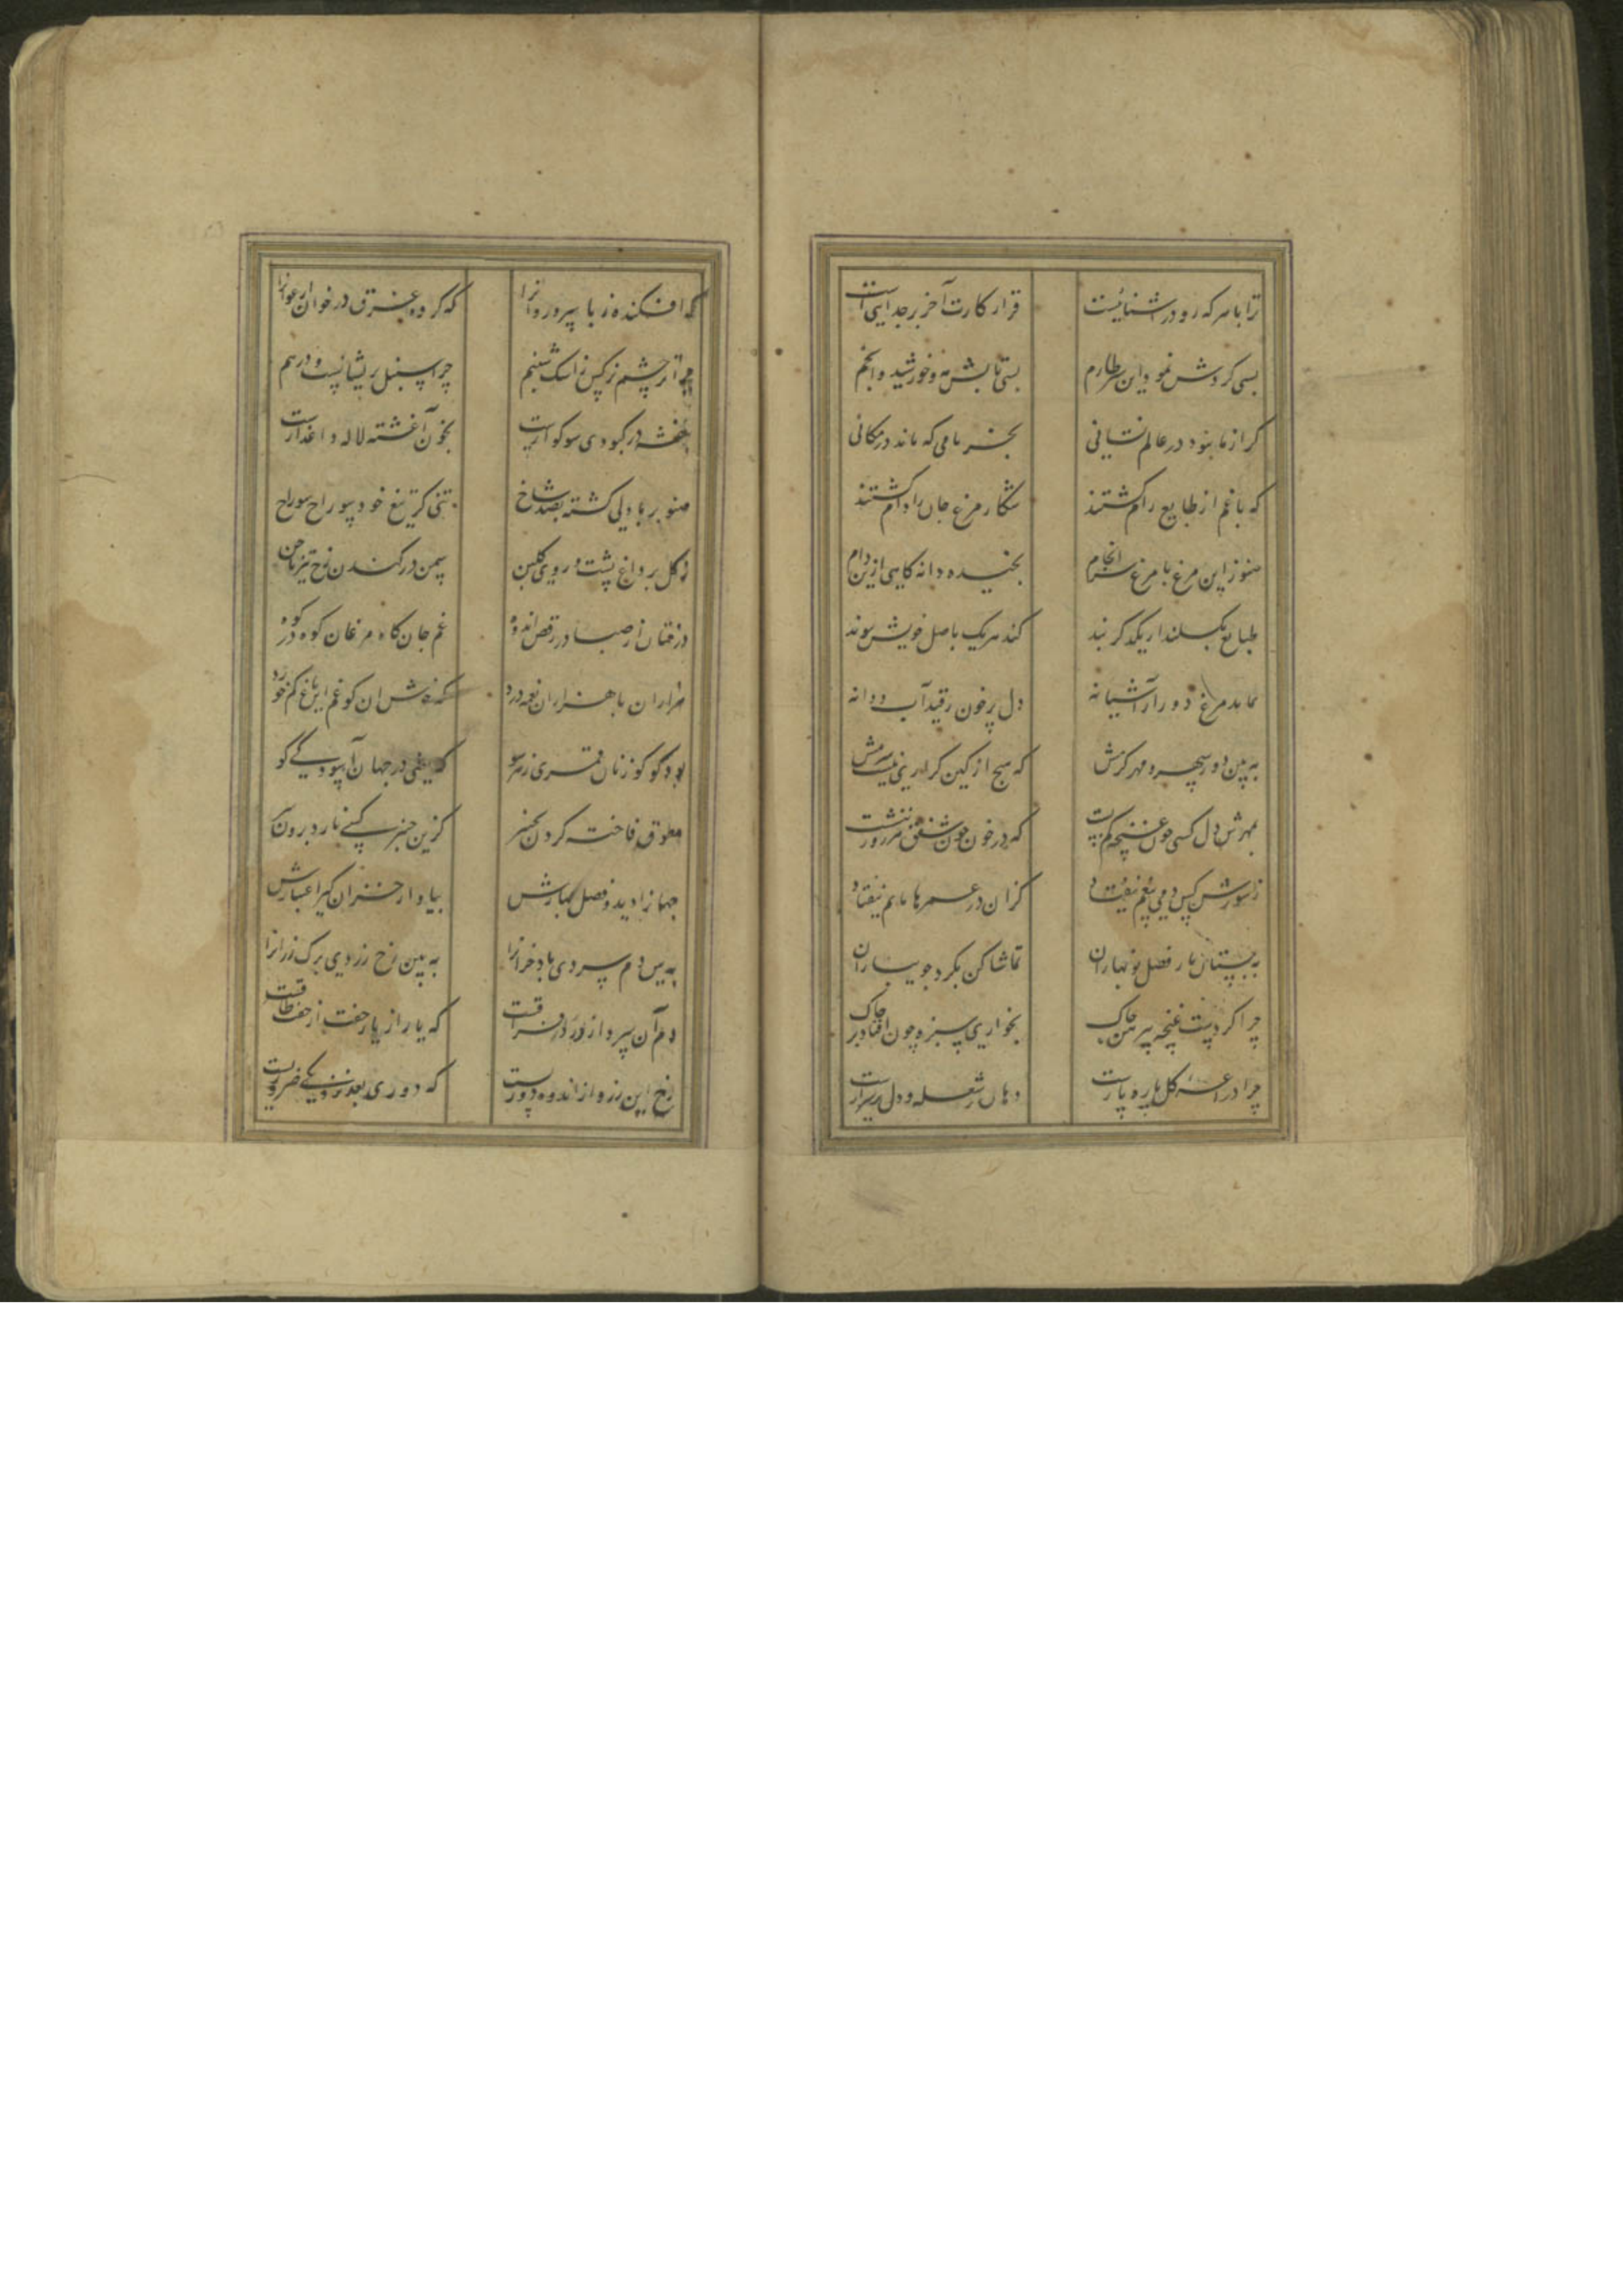 ترا با هر که رو در آشناییست قرار کارت آخر بر جداییست
بسی گردش نمود این سبز طارم بسی تابش مه و خورشید و انجم
که با غم از طبایع رام گشتند شکار مرغ جان را دام گشتند
هنوز این مرغ با مرغ سرانجام نچیده دانه کامی ازین دام
طبایع بگسلند از یکدگر بند کند هر یک باصل خویش پیوند
بماند مرغ دور از آشیانه دل پر خون ز قید آب و دانه
به بین دور سپهر و مهر گرمش که هیچ از کین گذاری نیست شرمش
بمهرش دل کسی چون غنچه کم بست که در خون چون شفق هر روز ننشست
به بستان بار فصل نوبهاران تماشا کن بگرد جویباران
چرا کردست غنچه پیرهن چاک بخواری سبزه چون افتاد بر خاک
چرا در غصه گل پاره پارست دهان پر شعله و دل پر شرارست
که افکنده ز پا سرو روانرا که کرده غرق در خون ارغوانرا
چرا تر چشم نرگس ز اشک شبنم چرا سنبل پریشانست و درهم
بنفشه در کبودی سوگوارست بخون آغشته لاله داغدارست
صنوبر با دلی گشته بصد شاخ تنی کز تیغ خود سوراخ سوراخ
ز گل بر داغ پشت و روی گلبن سمن در کندن رخ تیز ناخن
درختان از صبا در رقص اندوه غم جان کاه مرغان کوه در کوه
هزاران با هزاران نغمه درد
بود کوکو زنان قمری ز هر سو که یعنی در جهان آسودگی کو
مطوق فاخته گردن بچنبر کزین چنبر کسی نارد برون سر
جهانرا دیده فصل بهارش بیا و از خزان گیر اعتبارش
به بین دم سردی باد خزانرا به بین رخ زردی برگ رزانرا
دم آن سرد از درد فراقست که یار از یار جفت از جفت طاقست
رخ این زرد از اندوه دوریست که دوری بعد نزدیکی ضروریست